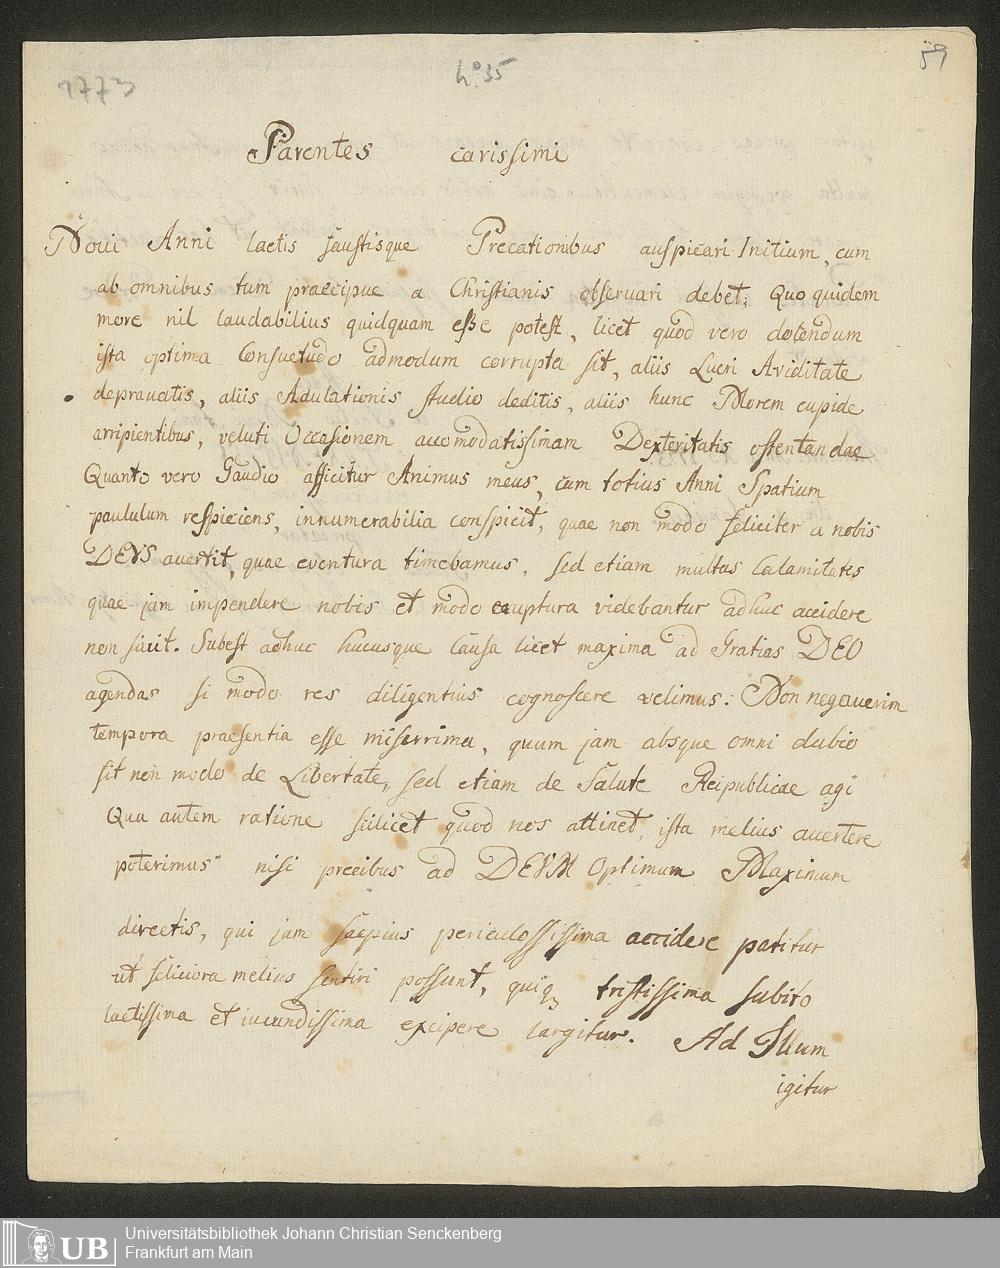 1773
no 35
59
Parentes carissimi
Noui Anni laetis faustisque Precationibus auspicari Initium, cum
ab omnibus tum praecipue a Christianis observari debet; Quo quidem
more nil laudabilius quidquam esse potest, licet quod vero dolendum
ista optima Consuetudo admodum corrupta sit, aliis Lucri Aviditate
deprauatis, aliis Adulationis studio deditis, aliis hunc Morem cupide
arripientibus, veluti Occasionem accomodatissimam Dexteritatis ostentandae
Quanto vero Gaudio afficitur Animus meus, cum totius Anni Spatium
paululum respiciens, innumerabilia conspicit, quae non modo feliciter a nobis
DEVS auertit, quae eventura timebamus, sed etiam multas Calamitates
quae jam impendere nobis et modo eruptura videbantur adhuc accidere
non sivit. Subest adhuc hucusque Causa licet maxima ad Gratias DEO
agendas si modo res diligentius cognoscere velimus: Non negauerim
tempora praesentia esse miserrima, quum jam absque omni dubio
sit non modo de Libertate, sed etiam de Salute Reipublicae agi
Qua autem ratione scilicet quod nos attinet, ista melius auertere
poterimus nisi precibus ad DEVM Optimum Maximum
directis, qui jam saepius periculosissima accidere patitur
ut feliciora melius sentiri possunt, quiq tristissima subito
laetissima et iucundissima excipere largitur. Ad Illum
igitur
UB
Universitätsbibliothek Johann Christian Senckenberg
Frankfurt am Main